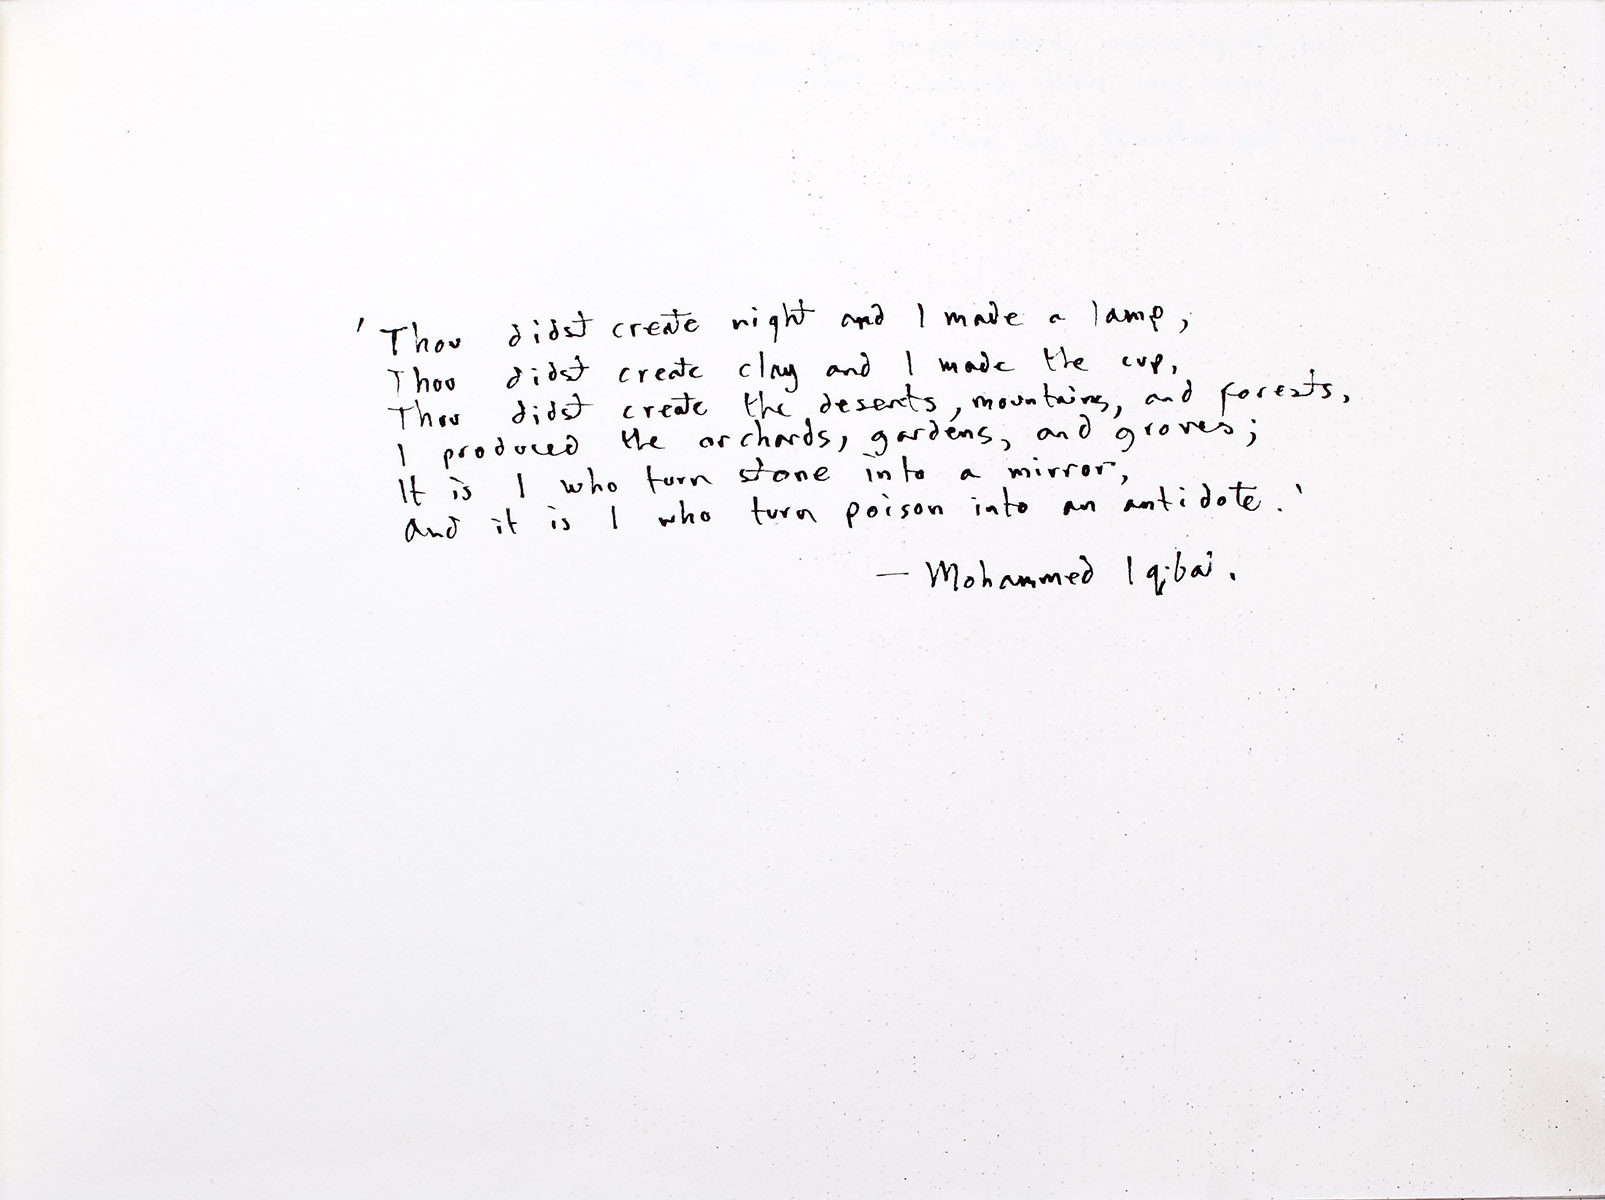 'Thou didst create night and I made a lamp,
Thou didst create clay and I made the cup,
Thou didst create the deserts, mountains, and forests,
I produced the orchards, gardens, and groves;
It is I who turn stone into a mirror,
and it is I who turn poison into an antidote.'
— Mohammed Iqbal.